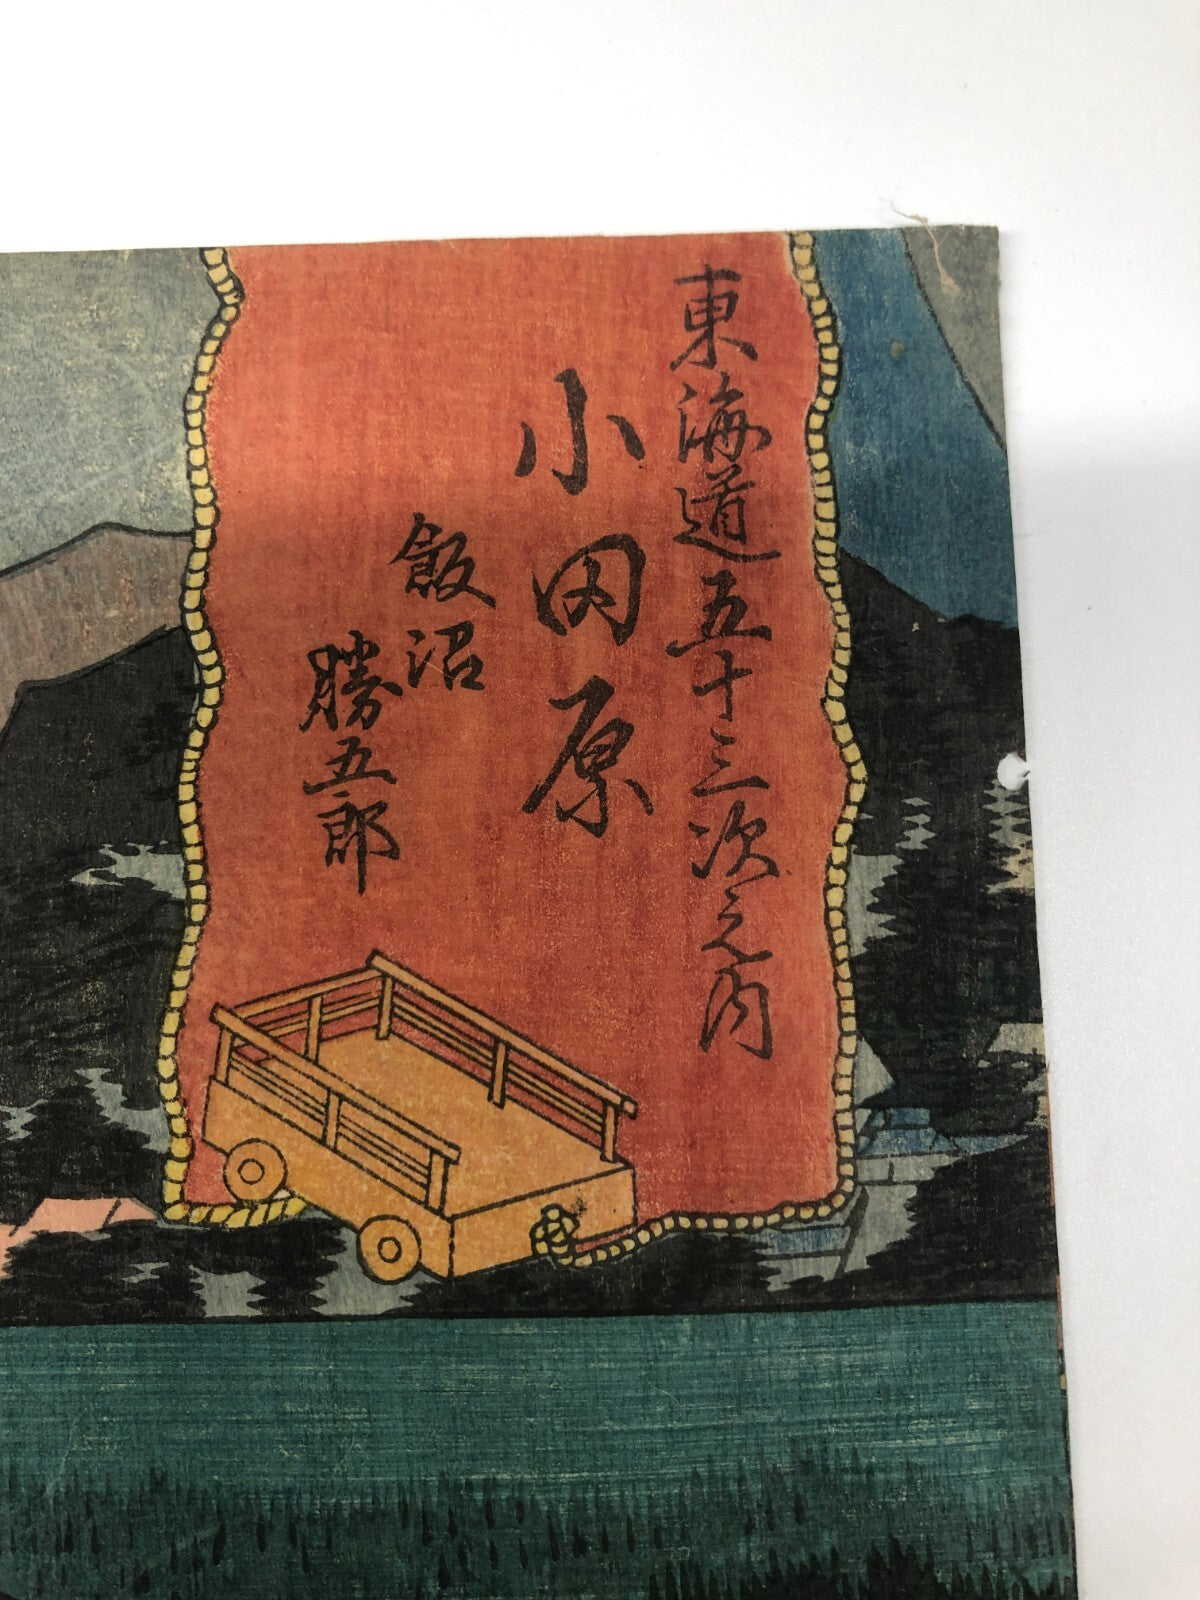 東海道五十三次之内
小田原
飯沼
勝五郎